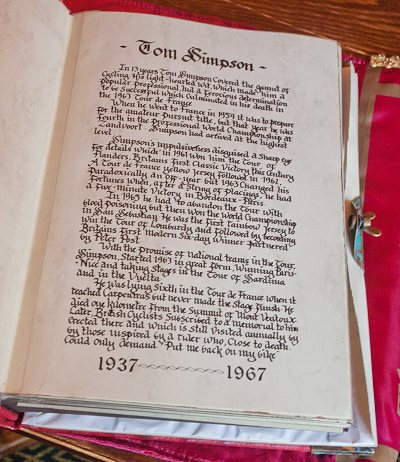 - Tom Simpson -
In 13 years Tom Simpson Covered the gamut of
Cycling. His light-hearted Wit, which made him a
popular professional, had a ferocious determination
to be Successful which Culminated in his death in
the 1967 Tour de France
When he went to France in 1959 it was to prepare
for the amateur pursuit title, but that year he was
Fourth in the Professional World Championship at
Zandvoort. Simpson had arrived at the highest
level
Simpson's impulsiveness disguised a Sharp eye
for details which in 1961 won him the Tour of
Flanders, Britains first Classic Victory this Century
A Tour de France yellow jersey followed in 1962,
Paradoxically an "off" year but 1963 Changed his
Fortunes when, after a String of placings, he had
a five-minute Victory in Bordeaux-Paris
In 1965 he had to abandon the Tour with
blood poisoning but then won the World Championship
in San Sebastian. He was the first rainbow jersey to
win the Tour of Lombardy and followed by becoming
Britains first modern Six-day Winner partnered
by Peter Post.
With the Promise of national teams in the Tour,
Simpson, Started 1967 in great form, Winning Paris-
-Nice and taking Stages in the Tour of Sardinia
and in the Vuelta
He was lying Sixth in the Tour de France when it
reached Carpentras but never made the Stage finish. He
died one kilometre from the Summit of Mont Ventoux.
Later, British Cyclists Subscribed to a memorial to him
erected there and which is still Visited annually by
by those inspired by a rider who, Close to death
Could only demand "Put me back on my bike"
1937 1967